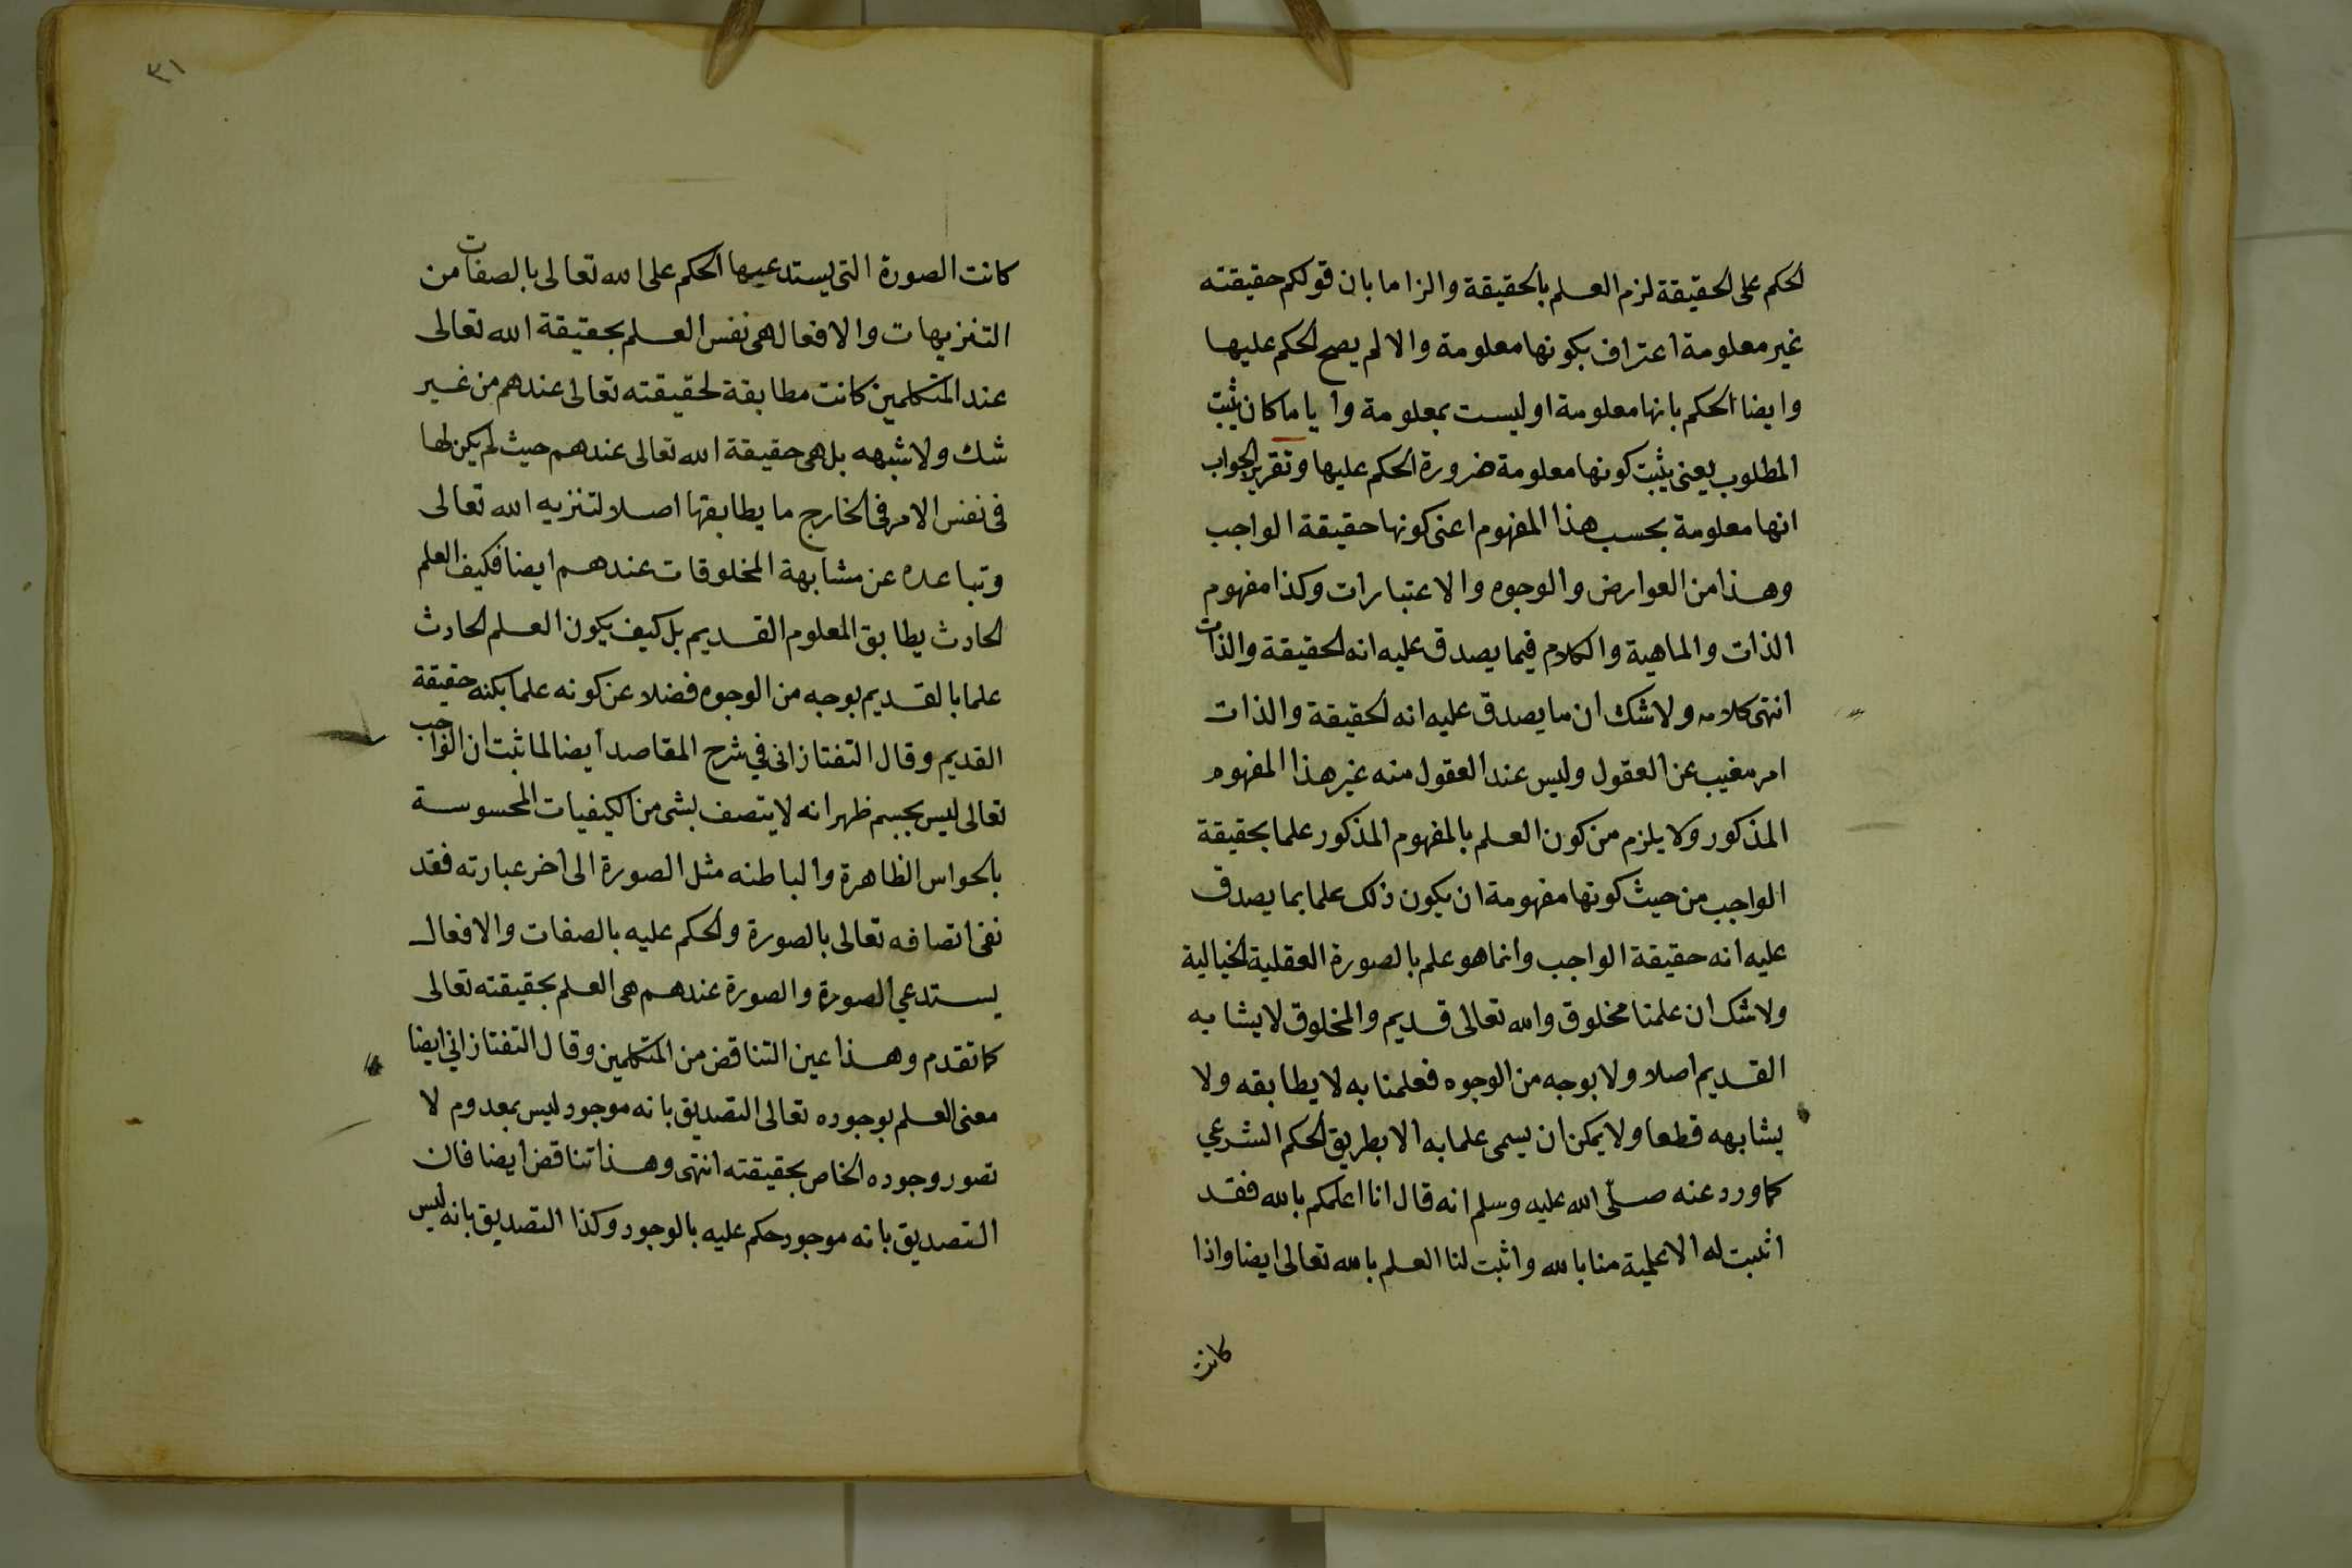 الحكم على الحقيقة لزم العلم بالحقيقة والزاما بان قولكم حقيقته
غير معلومة اعتراف بكونها معلومة والا لم يصح الحكم عليها
وايضا الحكم بانها معلومة او ليست بمعلومة وايا ما كان يثبت
المطلوب يعنى يثبت كونها معلومة ضرورة الحكم عليها وتقرير الجواب
انها معلومة بحسب هذا المفهوم اعنى كونها حقيقة الواجب
وهذا من العوارض والوجوه والاعتبارات وكذا مفهوم
الذات والماهية والكلام فيما يصدق عليه انه الحقيقة والذات
انتهى كلامه ولا شك ان ما يصدق عليه انه الحقيقة والذات
امر مغيب عن العقول وليس عند العقول منه غير هذا المفهوم
المذكور ولا يلزم من كون العلم بالمفهوم المذكور علما بحقيقة
الواجب من حيث كونها مفهومة ان يكون ذلك علما بما يصدق
عليه انه حقيقة الواجب وانما هو علم بالصورة العقلية الخيالية
ولا شك ان علمنا مخلوق والله تعالى قديم والمخلوق لا يشابه
القديم اصلا ولا بوجه من الوجوه فعلمنا به لا يطابقه ولا
يشابهه قطعا ولا يمكن ان يسمى علما به الا بطريق الحكم الشرعي
كما ورد عنه صلى الله عليه وسلم انه قال انا اعلمكم بالله فقد
اثبت له الاعلمية منا بالله واثبت لنا العلم بالله تعالى ايضا واذا
كانت
٣١
كانت الصورة التى يستدعيها الحكم على الله تعالى بالصفات من
التنزيهات والافعال هى نفس العلم بحقيقة الله تعالى
عند المتكلمين كانت مطابقة لحقيقته تعالى عندهم من غير
شك ولا شبهه بل هى حقيقة الله تعالى عندهم حيث لم يكن لها
فى نفس الامر فى الخارج ما يطابقها اصلا لتنزيه الله تعالى
وتباعده عن مشابهة المخلوقات عندهم ايضا فكيف العلم
الحادث يطابق المعلوم القديم بل كيف يكون العلم الحادث
علما بالقديم بوجه من الوجوه فضلا عن كونه علما بكنه حقيقة
القديم وقال التفتازانى في شرح المقاصد أيضا لما ثبت ان الواجب
تعالى ليس بجسم ظهر انه لا يتصف بشى من الكيفيات المحسوسة
بالحواس الظاهرة والباطنه مثل الصورة الى اخر عبارته فقد
نفى اتصافه تعالى بالصورة والحكم عليه بالصفات والافعال
يستدعي الصورة والصورة عندهم هى العلم بحقيقته تعالى
كما تقدم وهذا عين التناقض من المتكلمين وقال التفتازاني ايضا
معنى العلم بوجوده تعالى التصديق بانه موجود ليس بمعدوم لا
تصور وجوده الخاص بحقيقته انتهى وهذا تناقض ايضا فان
التصديق بانه موجود حكم عليه بالوجود وكذا التصديق بانه ليس